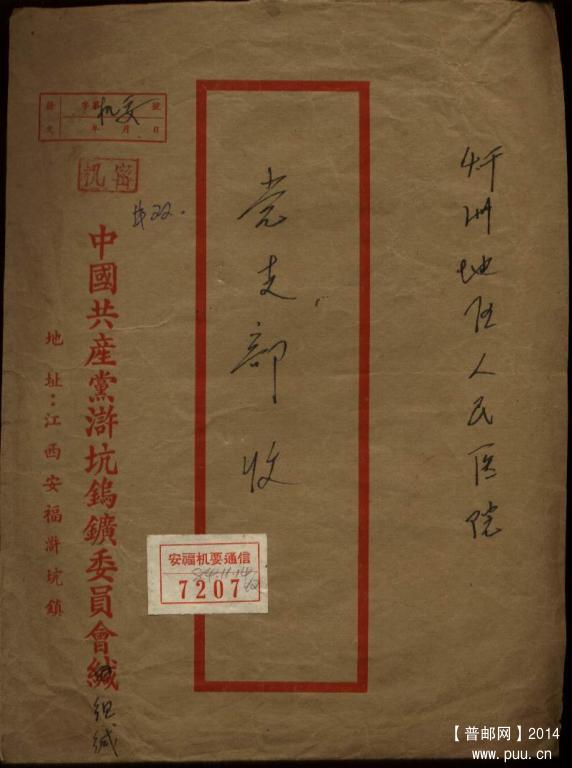 忻州地区人民医院
党支部收
發文
字第机委號
年月日
机密
中國共産黨滸坑鎢鑛委員會緘
组缄
地址：江西安福滸坑鎮
安福机要通信
84.11.14
7207
【普邮网】2014
www.puu.cn